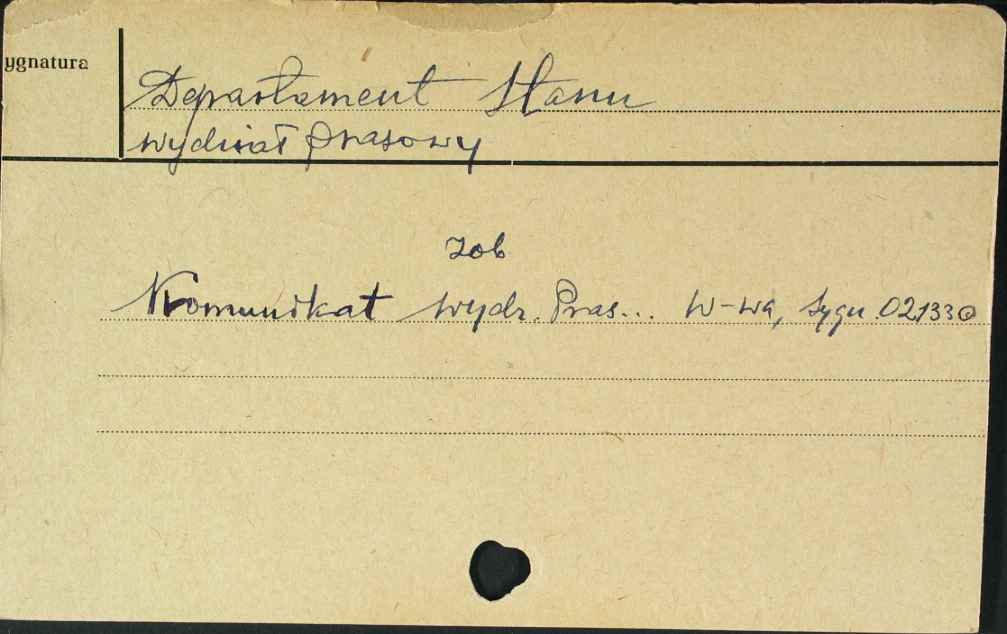 ygnatura
Departament Stanu
wydział prasowy
zob
Komunikat wydz. Pras... W-wa, sygn. 021330